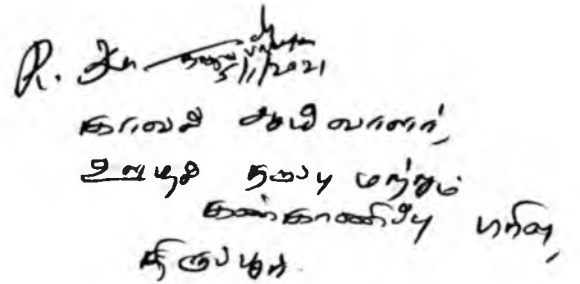 R.
5/1/2021
காவல் ஆய்வாளர்,
ஊழல் தடுப்பு மற்றும்
கண்காணிப்பு பிரிவு,
திருப்பூர்.